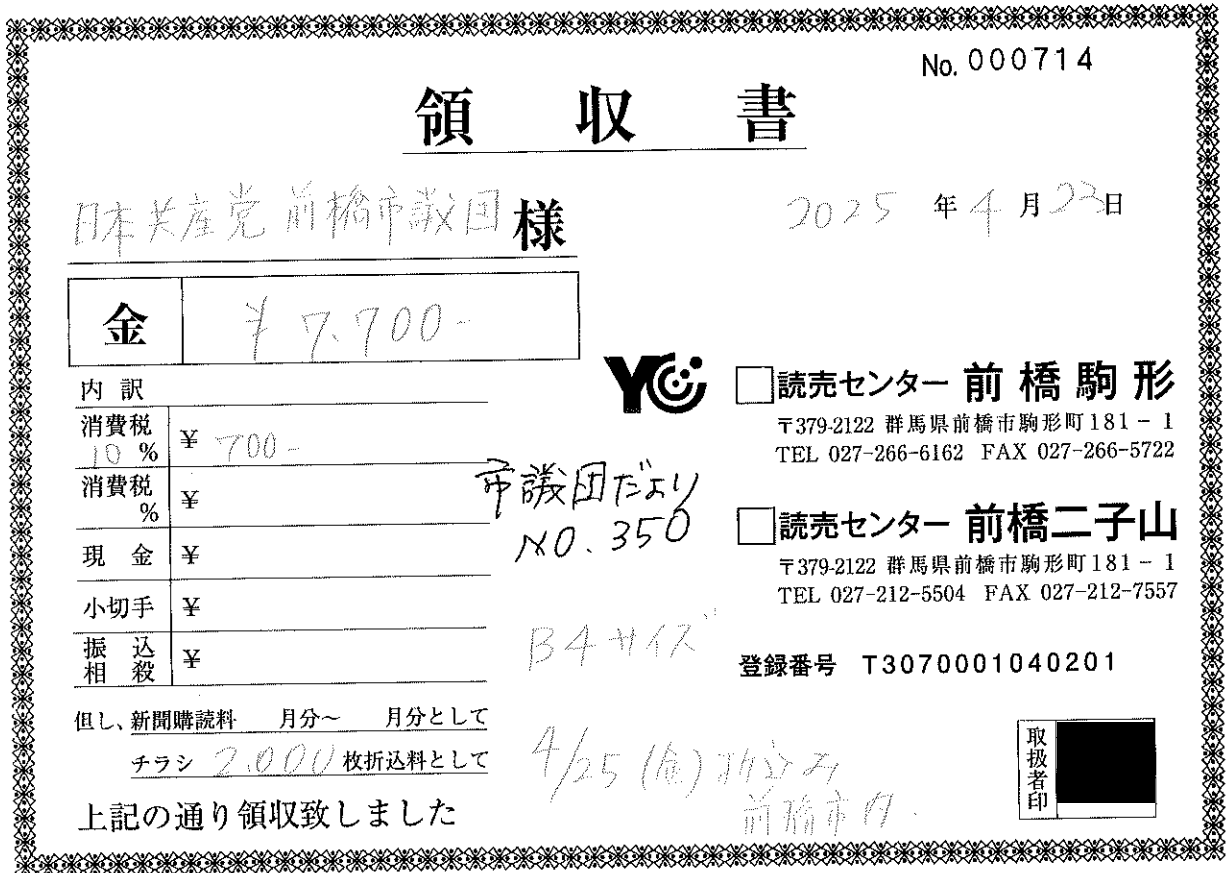 No. 000714
領収書
日本共産党 前橋市議団 様
2025 年 4 月 23 日
金 ¥7.700-
内訳
消費税 10 % ¥ 700-
消費税 % ¥
現金 ¥
小切手 ¥
振込相殺 ¥
但し、新聞購読料 月分〜 月分として
チラシ 2.000 枚折込料として
上記の通り領収致しました
市議団だより
NO. 350
B4サイズ
4/25 (金) 折込み
前橋市内.
YC
読売センター 前橋駒形
〒379-2122 群馬県前橋市駒形町181-1
TEL 027-266-6162 FAX 027-266-5722
読売センター 前橋二子山
〒379-2122 群馬県前橋市駒形町181-1
TEL 027-212-5504 FAX 027-212-7557
登録番号 T3070001040201
取扱者印